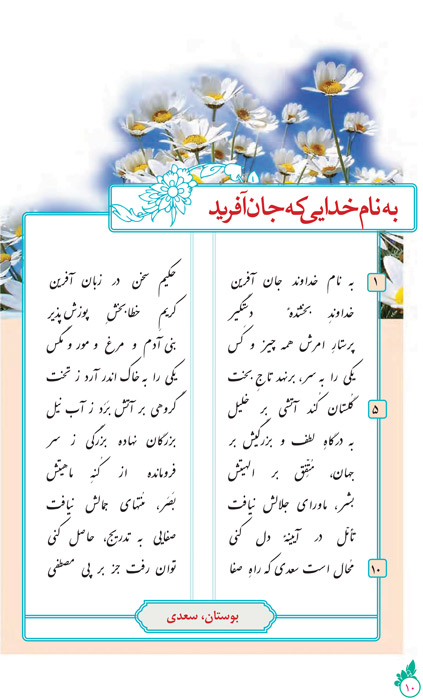 به نام خدایی که جان آفرید
۱ به نام خداوند جان آفرین حکیم سخن در زبان آفرین
خداوند بخشندهٔ دستگیر کریم خطابخشِ پوزش‌پذیر
پرستارِ امرش همه چیز و کس بنی‌آدم و مرغ و مور و مگس
یکی را به سر، برنهد تاجِ بخت یکی را به خاک اندر آرد ز تخت
۵ گلستان کُند آتشی بر خلیل گروهی بر آتش بَرَد ز آب نیل
به درگاهِ لطف و بزرگیش بر بزرگان نهاده بزرگی ز سر
جهان، مُتّفِق بر الهیتش فرومانده از کُنهِ ماهیتش
بشر، ماورای جلالش نیافت بَصَر، مُنتهای جمالش نیافت
تأمّل در آیینهٔ دل کنی صفایی به تدریج، حاصل کنی
۱۰ مُحال است سعدی که راهِ صفا توان رفت جز بر پی مصطفی
بوستان، سعدی
۱۰